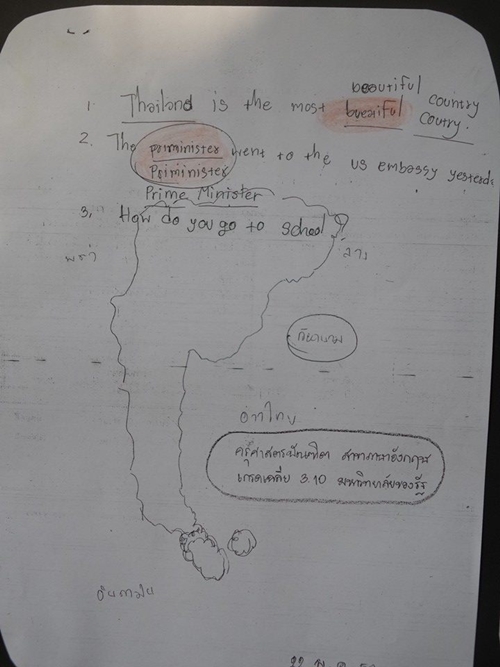 beautiful
1. Thailand is the most bueaiful country
Coutry.
2. The priminister went to the us embassy yesterda
Priminister
Prime Minister
3. How do you go to school
พม่า
ลาว
เวียดนาม
อ่าวไทย
ครุศาสตรบัณฑิต สาขาภาษาอังกฤษ
เกรดเฉลี่ย 3.10 มหาวิทยาลัยของรัฐ